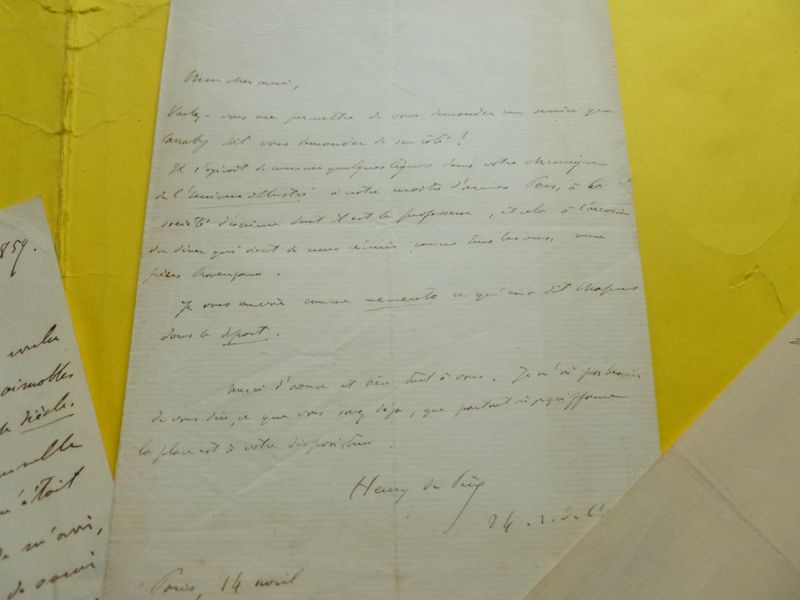 Mon cher ami,
Voulez-vous me permettre de vous demander un service que
doit vous demander de son côté ?
Il s'agirait de consacrer quelques lignes dans votre chronique
de l'Univers illustré à notre maître d'armes Pons, à la
société d'escrime dont il est le professeur, et cela à l'occasion
du dîner qui vient de nous réunir comme tous les ans, aux
frères Provençaux.
Je vous envoie comme memento ce qu'en a dit Chapus
dans le Sport.
Merci d'avance et bien tout à vous. Je n'ai pas besoin
de vous dire, ce que vous savez déjà, que partout où je griffonne
la place est à votre disposition.
Henry de Pène
24 r. de
Paris, 14 avril
859.
voulu
aimables
le Siècle.
n'était
de m'avoir,
de